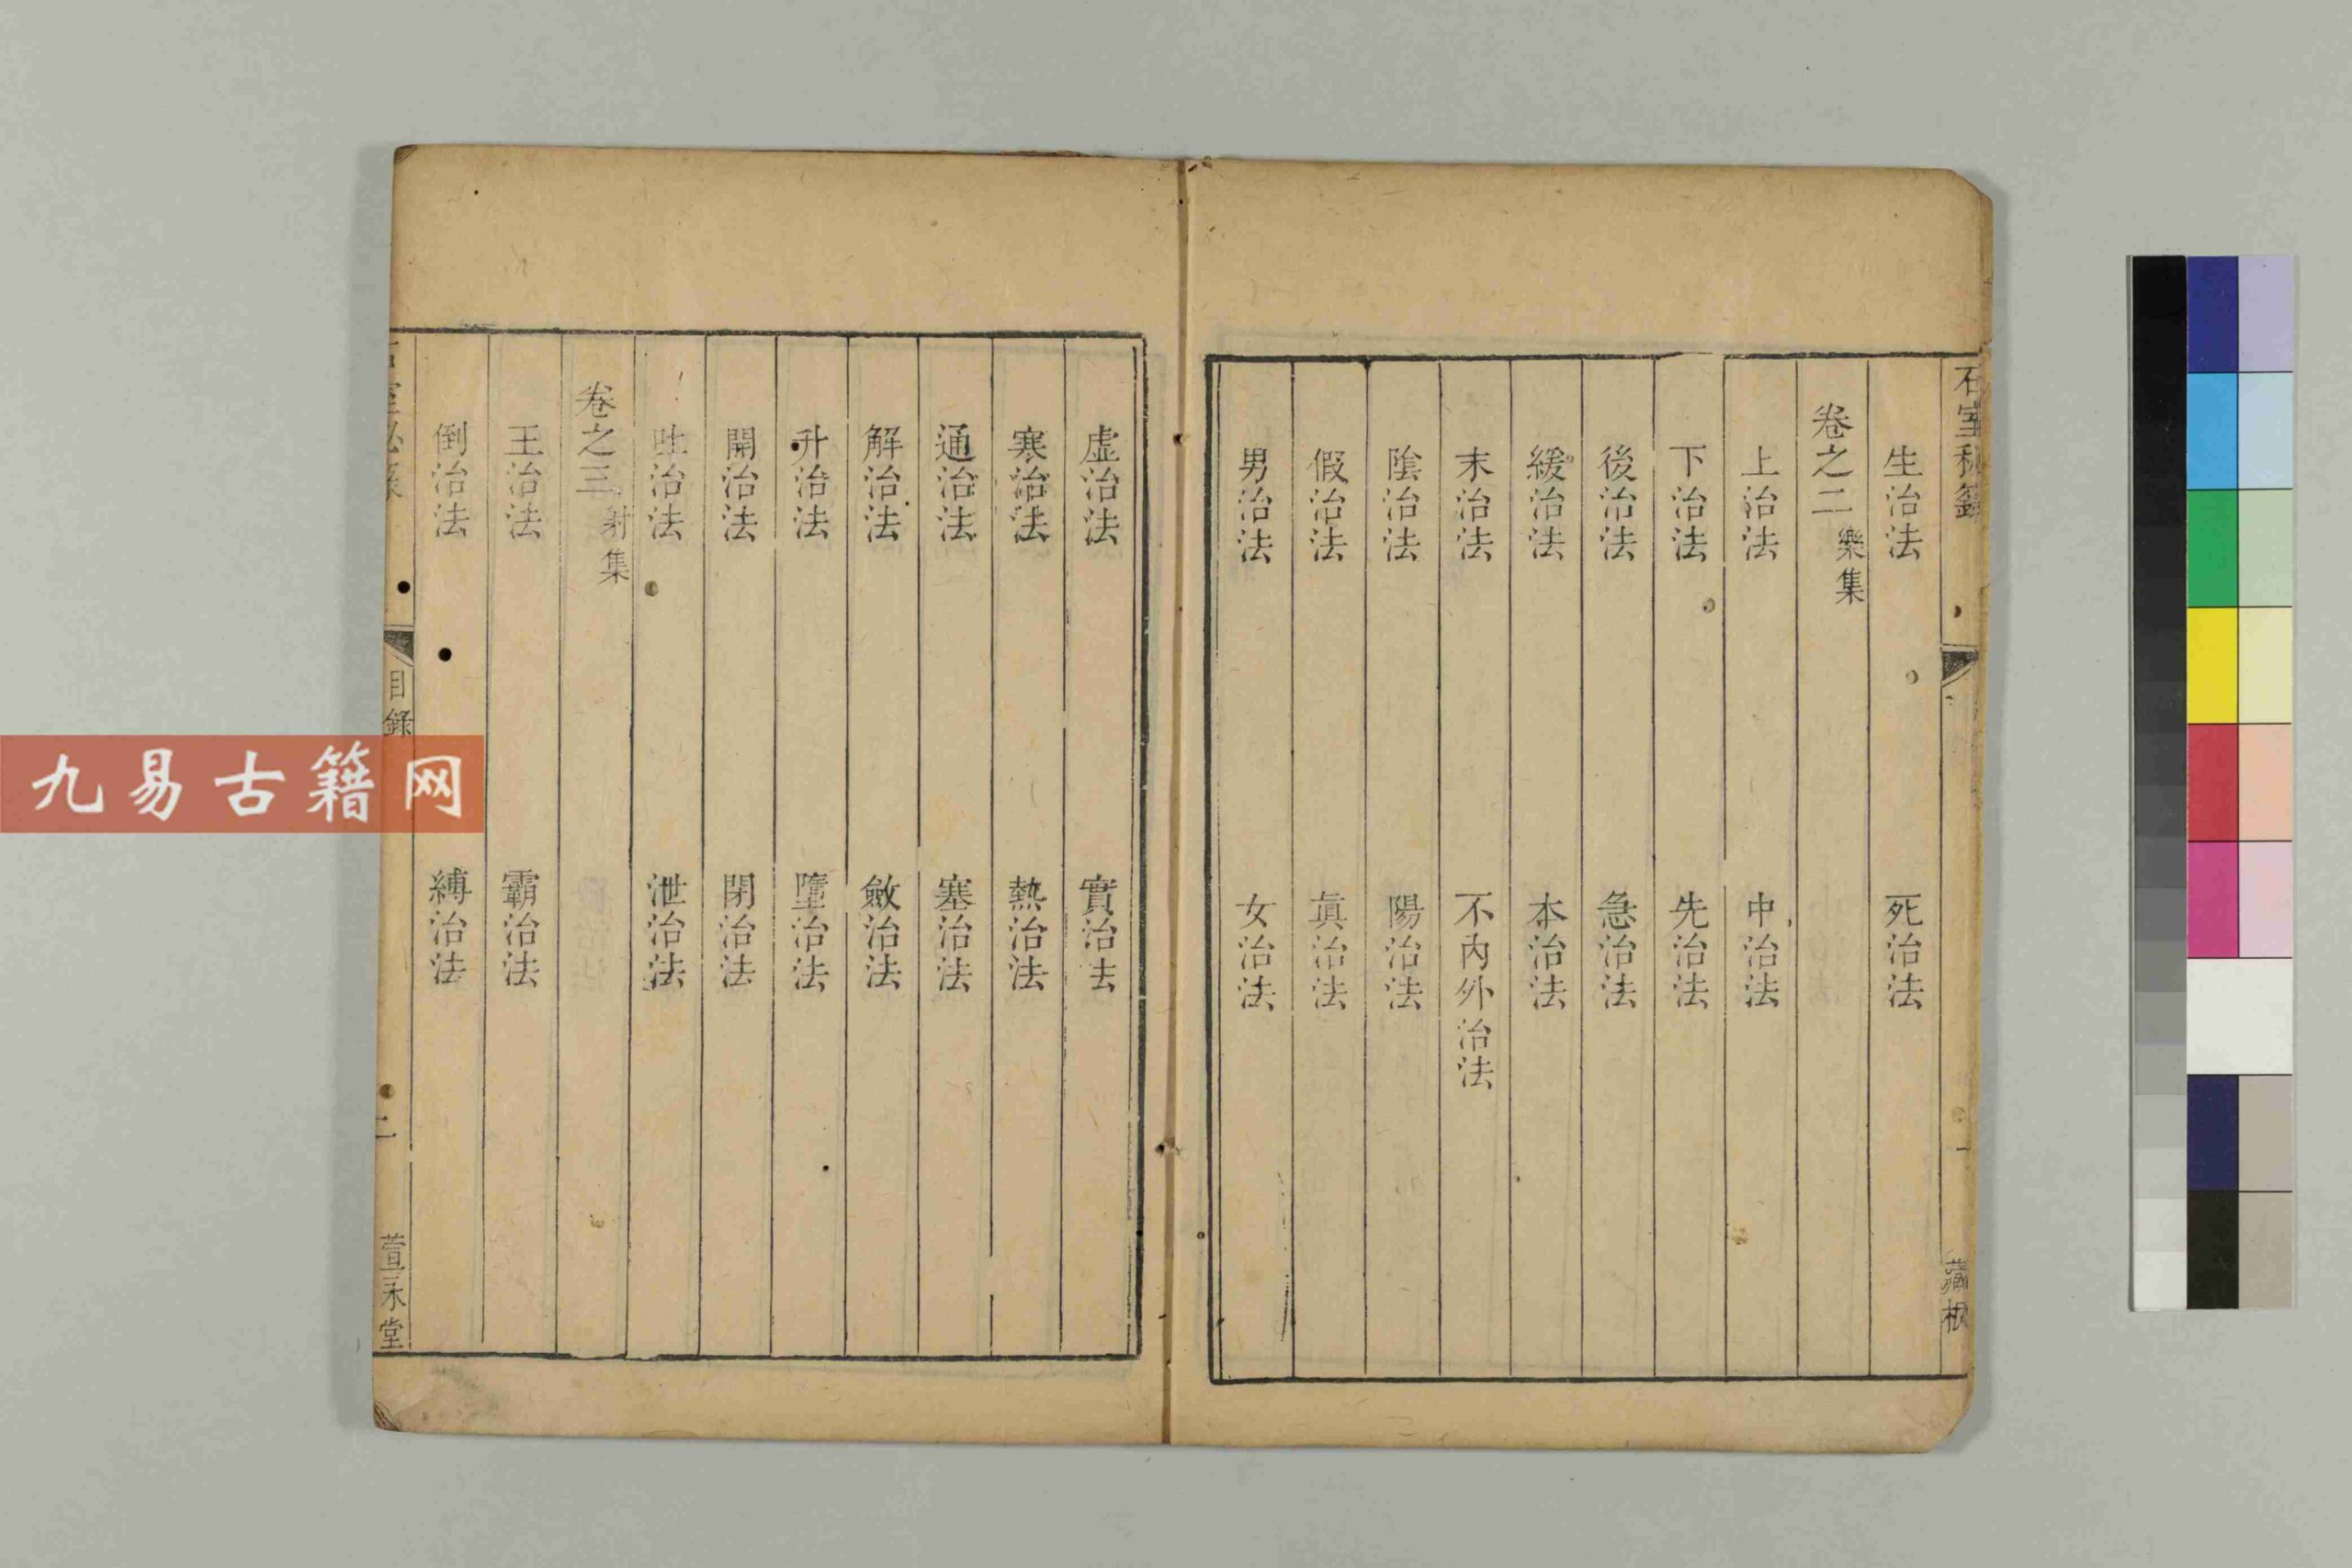 石室秘錄
藏板
生治法　死治法
卷之二 樂集
上治法　中治法
下治法　先治法
後治法　急治法
緩治法　本治法
末治法　不內外治法
陰治法　陽治法
假治法　眞治法
男治法　女治法
虛治法　實治法
寒治法　熱治法
通治法　塞治法
解治法　斂治法
升治法　墮治法
開治法　閉治法
吐治法　泄治法
卷之三 射集
王治法　霸治法
倒治法　縛治法
目錄
二
萱永堂
九易古籍网